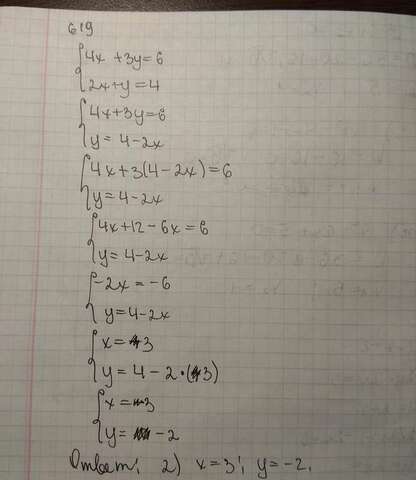 619
{4x + 3y = 6
{2x + y = 4
{4x + 3y = 6
{y = 4 - 2x
{4x + 3(4 - 2x) = 6
{y = 4 - 2x
{4x + 12 - 6x = 6
{y = 4 - 2x
{-2x = -6
{y = 4 - 2x
{x = 3
{y = 4 - 2 · (3)
{x = 3
{y = -2
Ответ: 2) x = 3; y = -2.